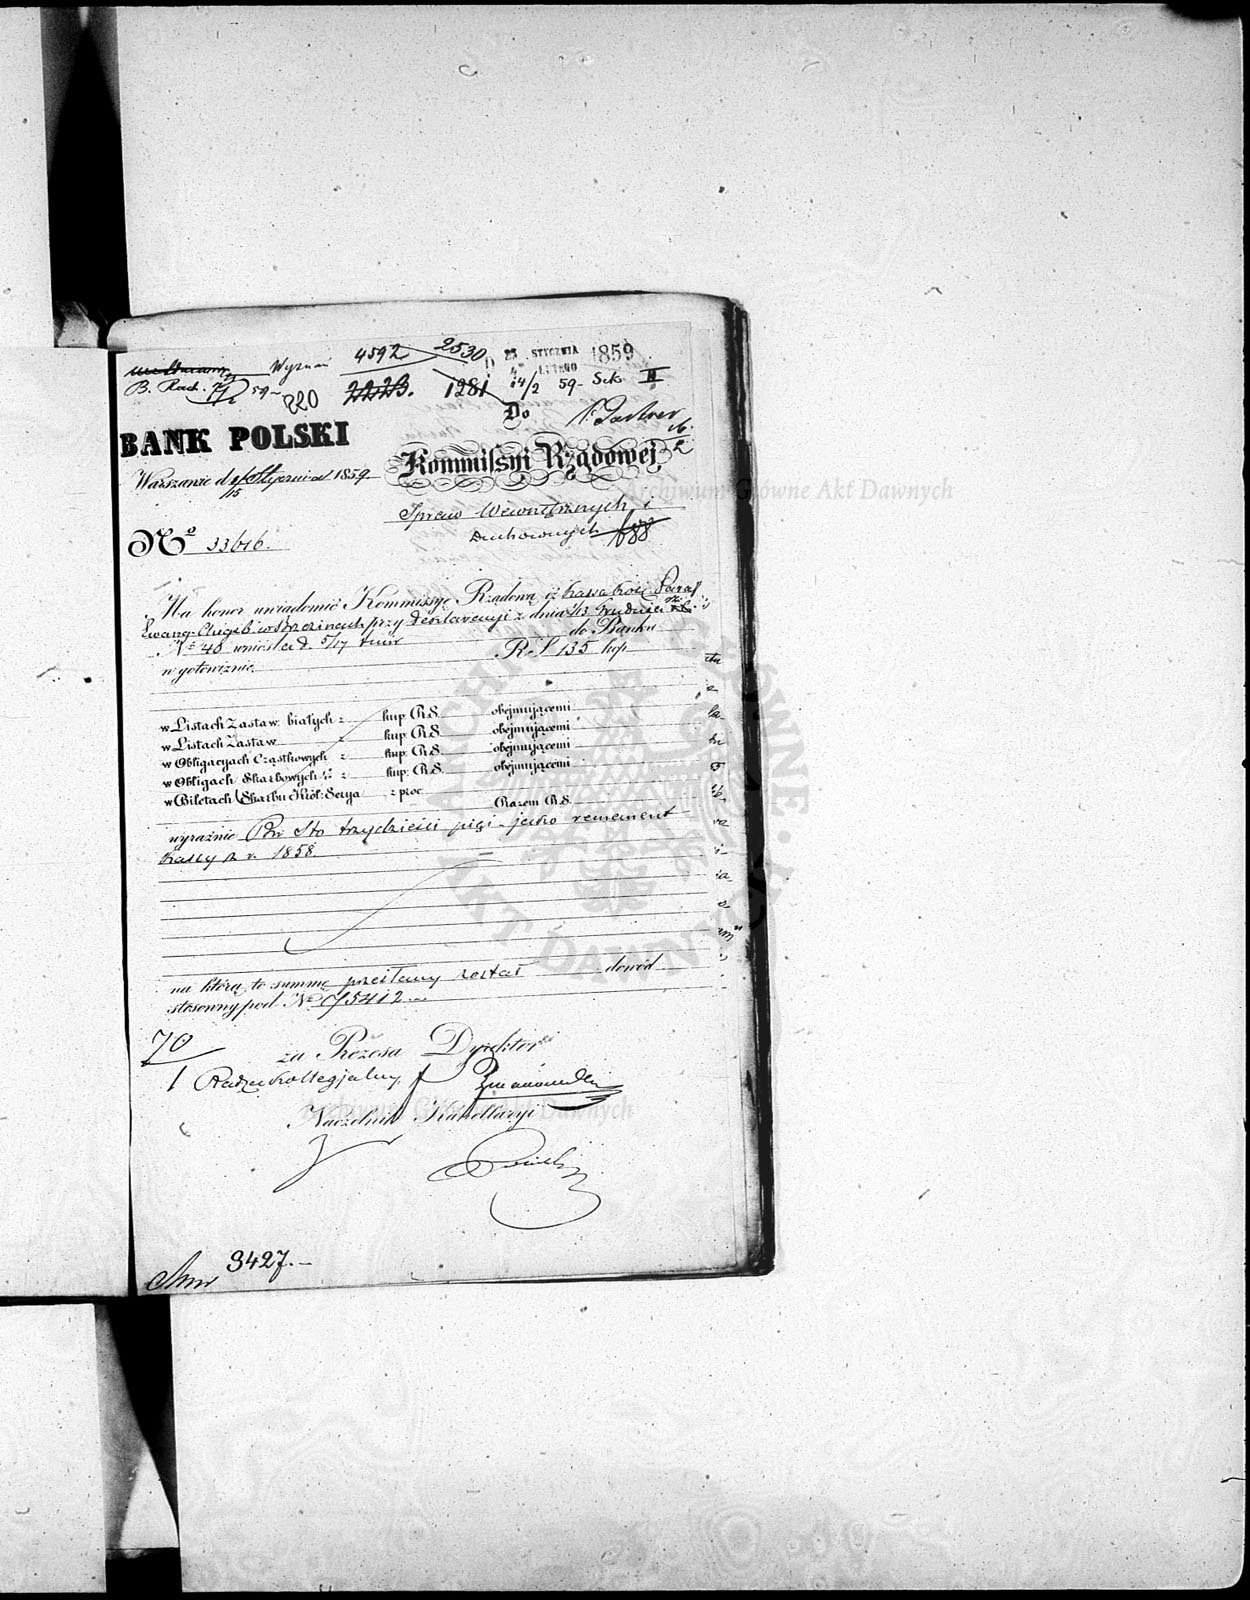 Wyznań 4592 2530 23 STYCZNIA 1859
4 LUTEGO
B. Rach. 59 820 2223. 1281 14/2 59 Sek. II
Do
BANK POLSKI
Kommissyi Rządowej
Warszawie d. Stycznia 1859.
Spraw Wewnętrznych i
Duchownych 688
Nº 33616.
Ma honor uwiadomić Kommissyę Rządową iż kassa kość. Paraf.
Ewang. Augsb. w Brzezinach przy deklaracyi z dnia 1/13 Grudnia r. z.
Nº 40 wniosła d. 5/17 do Banku
w gotowiznie RS 135 kop.
w Listach Zastaw: białych z kup. RS. obejmującemi
w Listach Zastaw z kup. RS. obejmującemi
w Obligacyach Cząstkowych z kup. RS. obejmującemi
w Obligach Skarbowych z kup. RS. obejmującemi
w Biletach Skarbu Król: Serya z proc.
Razem RS.
wyraźnie Rsr Sto trzydzieści pięć jako remanent
kassy z r. 1858.
na którą to summę przesłany został dowód
stosowny pod Nº 5412
70
za Prezesa Dyrektor
Radzca Kollegjalny
Naczelnik Kancellaryi
3427.
Archiwum Główne Akt Dawnych
Archiwum Główne Akt Dawnych
ARCHIWUM GŁÓWNE AKT DAWNYCH